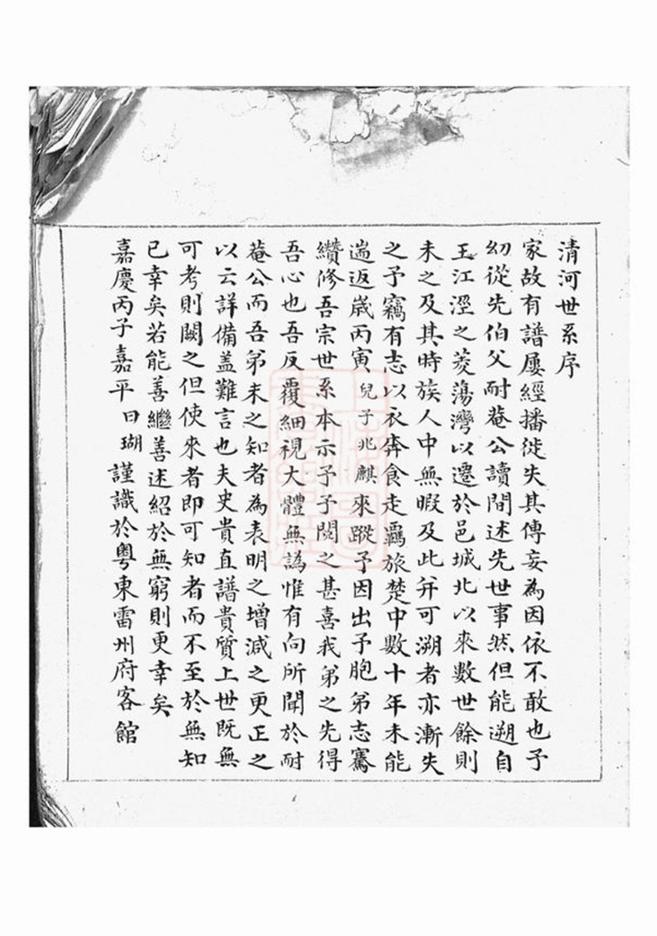 清河世系序
家故有譜屢經播徙失其傳妄為因依不敢也予
幼從先伯父耐菴公讀間述先世事然但能遡自
王江涇之菱蕩灣以遷於邑城北以來數世餘則
未之及其時族人中無暇及此并可溯者亦漸失
之予竊有志以衣奔食走羈旅楚中數十年未能
遄返歲丙寅兒子兆麒來蹤予因出予胞弟志騫
纘修吾宗世系本示予予閱之甚喜我弟之先得
吾心也吾反覆細視大體無譌惟有向所聞於耐
菴公而吾弟未之知者為表明之增減之更正之
以云詳備蓋難言也夫史貴直譜貴質上世既無
可考則闕之但使來者即可知者而不至於無知
已幸矣若能善繼善述紹於無窮則更幸矣
嘉慶丙子嘉平日瑚謹識於粵東雷州府客館